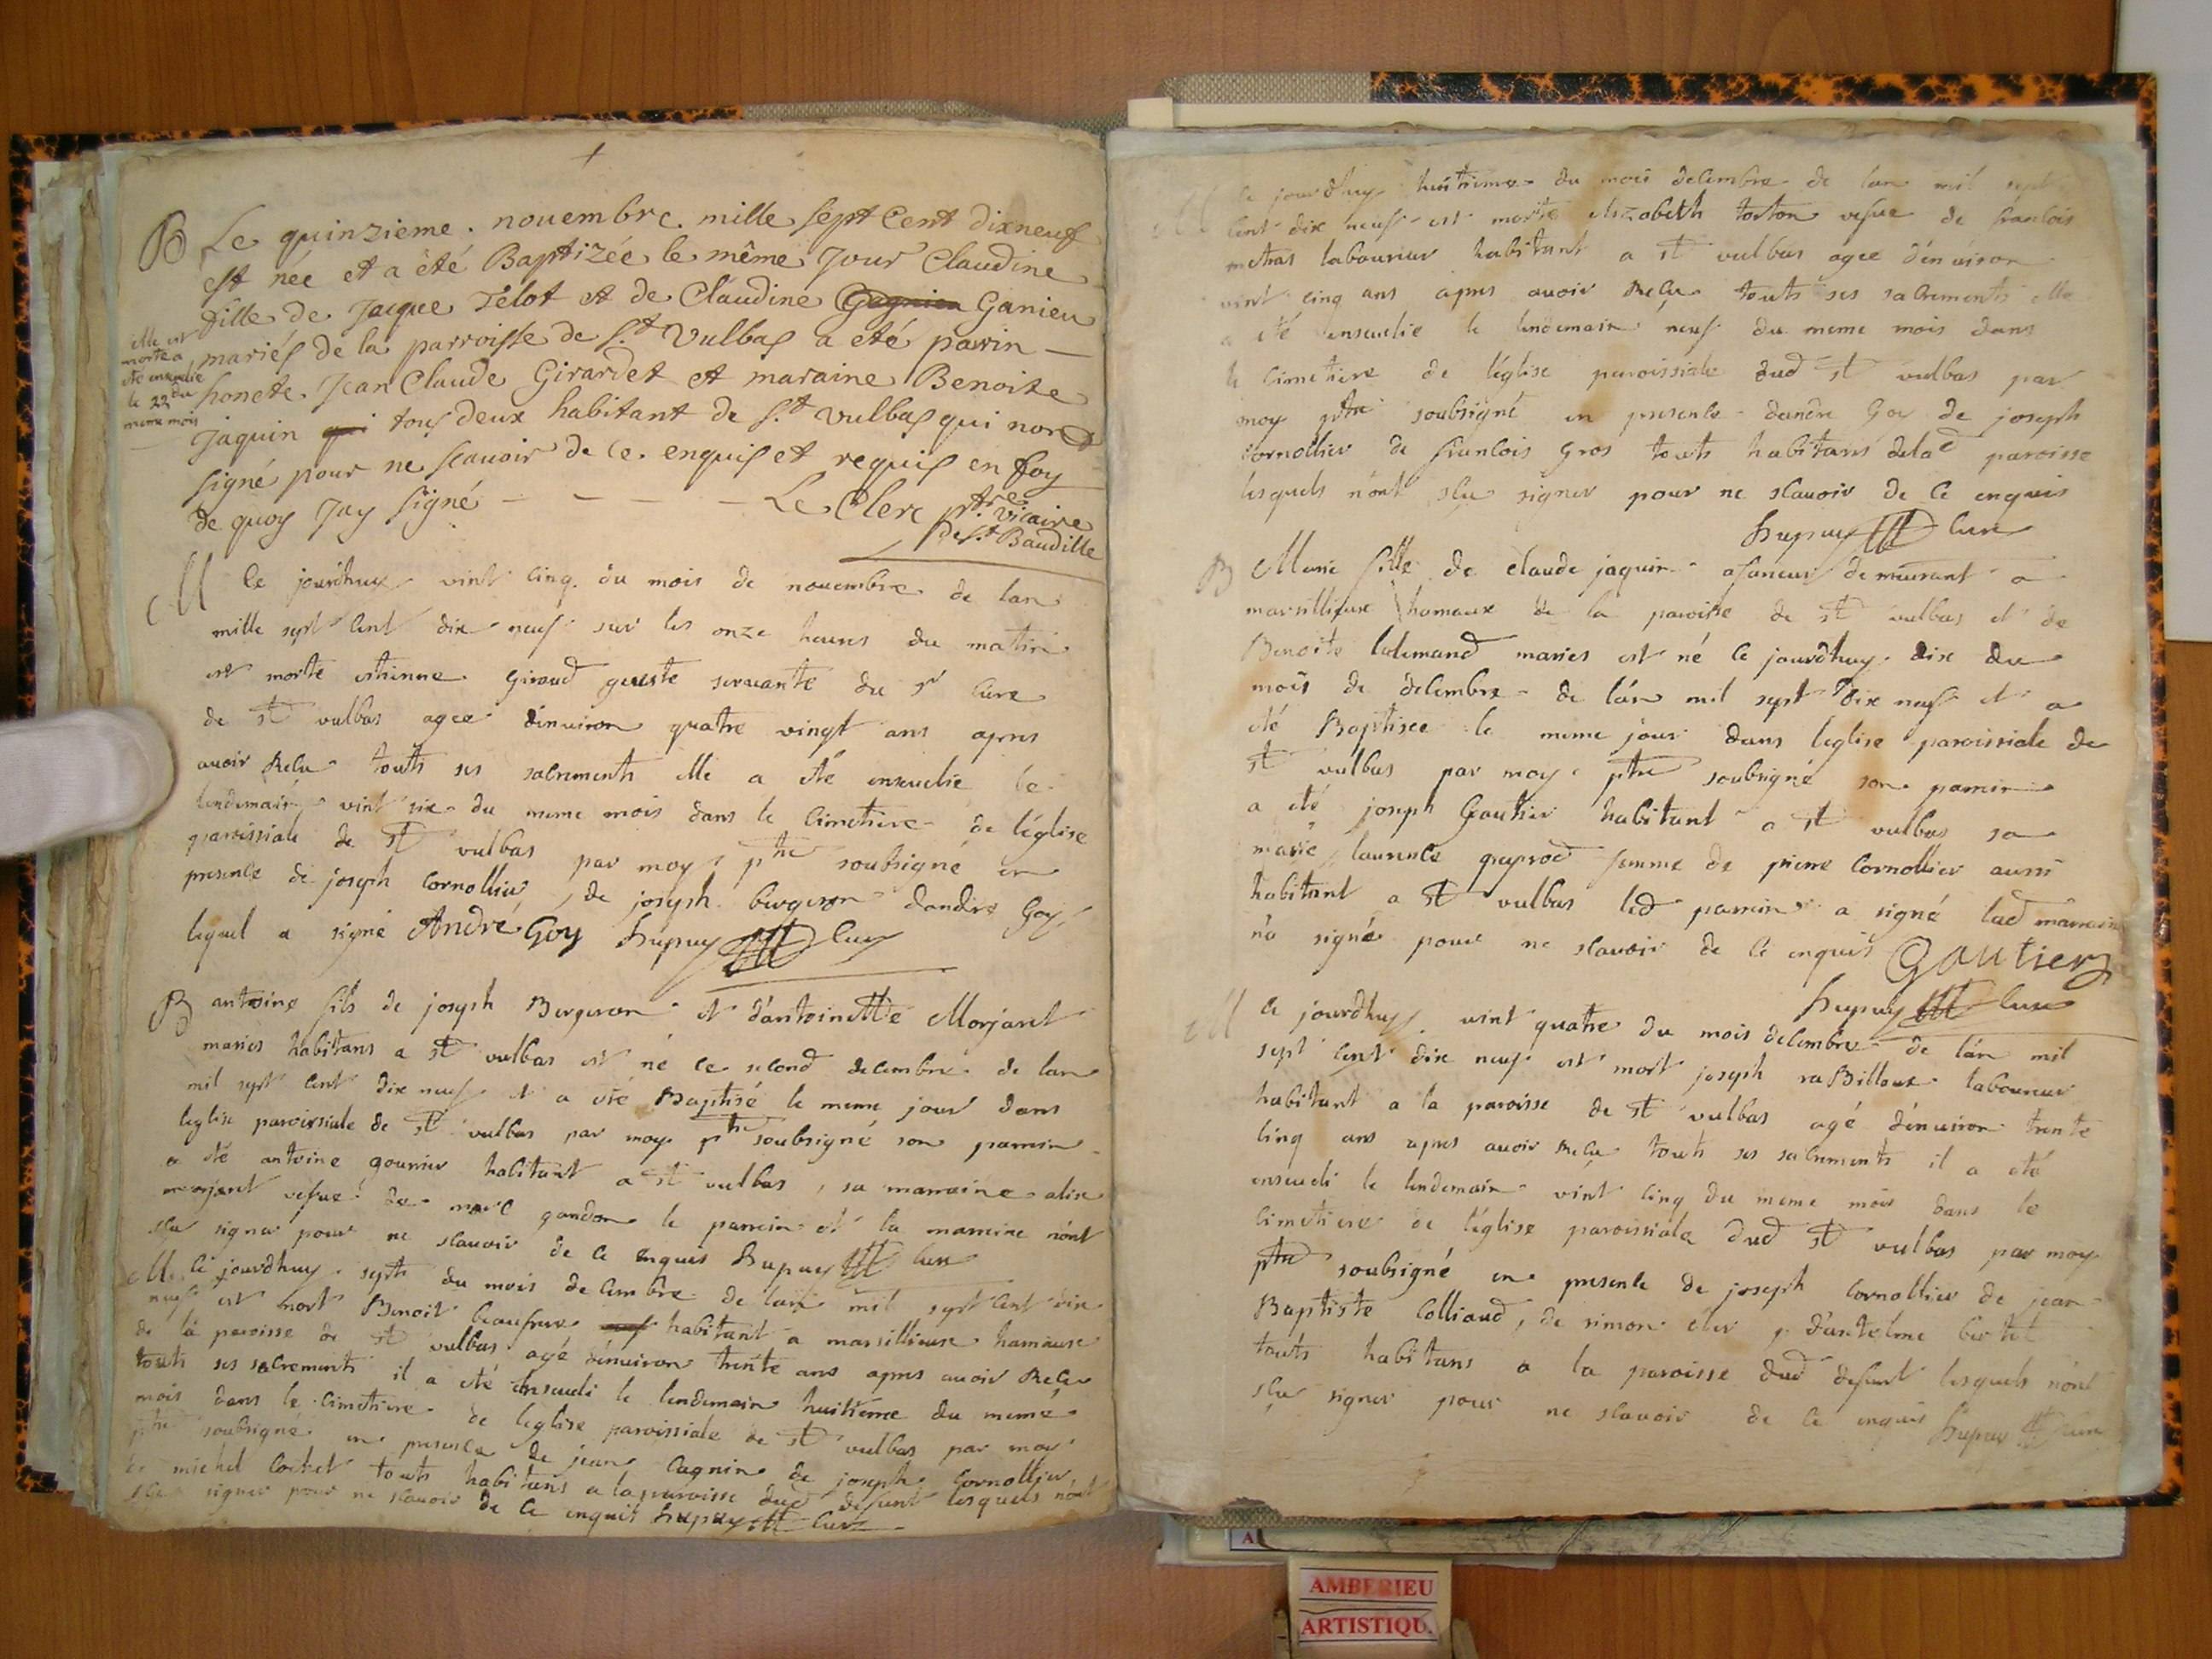 B Le quinzieme. nouembre. mille sept Cent dixneuf
est née et a été Baptizée le même Jour Claudine
fille de Jacque Télot et de Claudine Gagnieu Ganieu
mariés de la parroisse de St. Vulbas a eté parrin —
honete. Jean Claude Girardet et maraine Benoite
Jaquin qui tous deux habitant de St. Vulbas qui nont
signé pour ne scauoir de ce. enquis et requis en foy
de quoy Jay signé — — — — Le Clerc ptre. vicaire
De St. Baudille
elle est
morte a
eté enseuelie
le 22 du
meme mois
M Ce jourdhuy vint cinq. du mois de nouembre de lan
mille sept cent dix neuf sur les onze heures du matin
est morte etienne Giraud geuste seruante du sr cure
de st vulbas agee dénuiron quatre vingt ans apres
auoir Recu touts ses sacrements elle a été enseuelie le
lendemain vint six du meme mois dans le cimetiere de léglise
paroissiale de st vulbas par moy ptre soubsigné en
presence de joseph Cornollier, de joseph bergeron dandre Goy
lequel a signé André Goy Dupuy cure
B antoine fils de joseph Bergeron et d'antoinette Morjaret
maries habitans a st vulbas est né ce second decembre de lan
mil sept cent dix neuf et a été Baptisé le meme jour dans
leglise paroissiale de st vulbas par moy ptre soubsigné son parrein
a été antoine gourrier habitant a st vulbas, sa marraine alise
morjaret vefue de marc gandon le parrein et la marreine n'ont
scu signer pour ne scauoir de ce enquis Dupuy cure
M Ce jourdhuy. sept du mois decembre de lan mil sept cent dix
neuf est mort Benoit beaufrere habitant a marsillieux hameaux
de la paroisse de st vulbas agé dénuiron trente ans apres auoir Recu
touts ses sacrements il a été enseueli le lendemain huitiéme du meme
mois dans le cimetiere de leglise paroissiale de st vulbas par moy
ptre soubsigné en presence de jean Cagnin de joseph Cornollier
de michel Cochet touts habitans a la paroisse dud defunt lesquels n'ont
scu signer pour ne scauoir de ce enquis Dupuy cure
M Ce jourdhuy huitieme du mois decembre de lan mil sept
cent dix neuf est morte elizabeth torton vefue de francois
metras laboureur habitant a st vulbas agee dénuiron
vint cinq ans apres auoir Recu touts ses sacrements elle
a été enseuelie le lendemain neuf du meme mois dans
le cimetiere de léglise paroissiale dud st vulbas par
moy ptre soubsigné en presence dandre Goy de joseph
Cornollier de francois Gros touts habitans delad paroisse
lesquels n'ont scu signer pour ne scauoir de ce enquis
Dupuy cure
B Marie fille de claude jaquin afaneur demeurant a
marsillieux hameaux de la paroisse de st vulbas et de
Benoite lalemand maries est né ce jourdhuy dix du
mois de decembre de l'an mil sept dix neuf et a
été Baptisee le meme jour dans leglise paroissiale de
st vulbas par moy ptre soubsigné son parrein
a été joseph Gautier habitant a st vulbas sa
marie laurence femme de pierre Cornollier aussi
habitant a st vulbas led parrein a signé lad marreine
n'a signé pour ne scauoir de ce enquis Gautier
Dupuy cure
M Ce jourdhuy vint quatre du mois decembre de lan mil
sept cent dix neuf est mort joseph raBilloux laboureur
habitant a la paroisse de st vulbas agé dénuiron trente
cinq ans apres auoir recu touts ses sacrements il a eté
enseueli le lendemain vint cinq du meme mois dans le
cimetiere de léglise paroissiale dud st vulbas par moy
ptre soubsigné en presence de joseph Cornollier de jean
Baptiste Colliaud, de simon d'antelme bertet
touts habitans a la paroisse dud defunt lesquels n'ont
scu signer pour ne scauoir de ce enquis Dupuy cure
AMBERIEU
ARTISTIQU